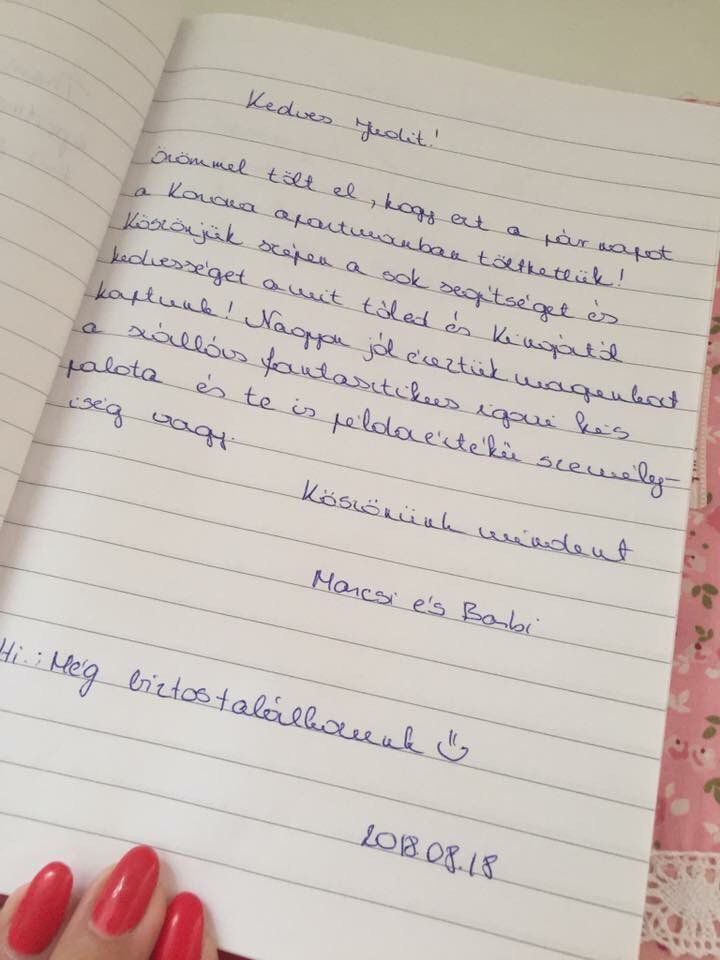 Kedves Judit!
Örömmel tölt el, hogy ezt a pár napot
a Korona apartmanban tölthettük!
Köszönjük szépen a sok segítséget és
kedvességet amit tőled és Kingától
kaptunk! Nagyon jól éreztük magunkat
a szállás fantasztikus igazi kis
palota és te is példaértékű személy-
iség vagy.
Köszönünk mindent
Marcsi és Barbi
Ui.: Még biztos találkozunk
2018.08.18